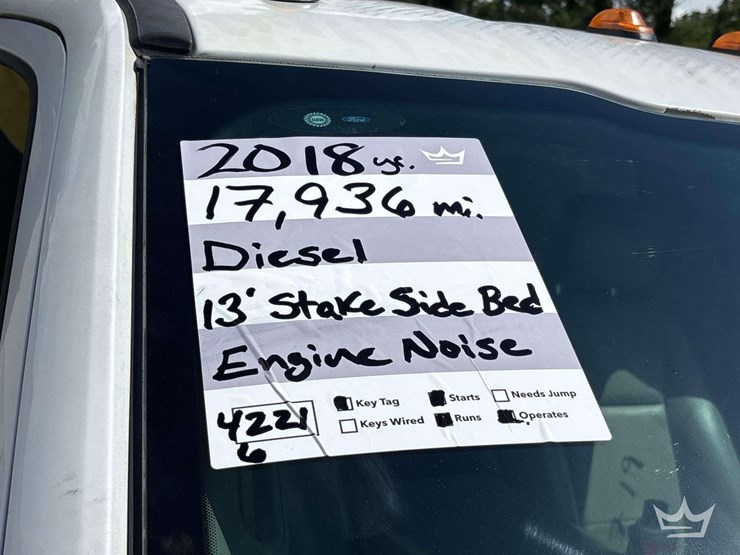 2018 yr.
17,936 mi.
Diesel
13' Stake Side Bed
Engine Noise
Key Tag Starts Needs Jump
4221 Keys Wired Runs Operates
6